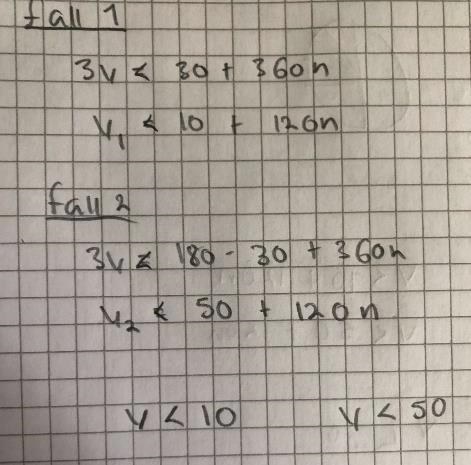 fall 1
3v < 30 + 360n
v₁ < 10 + 120n
fall 2
3v < 180 - 30 + 360n
v₂ < 50 + 120n
v < 10 v < 50